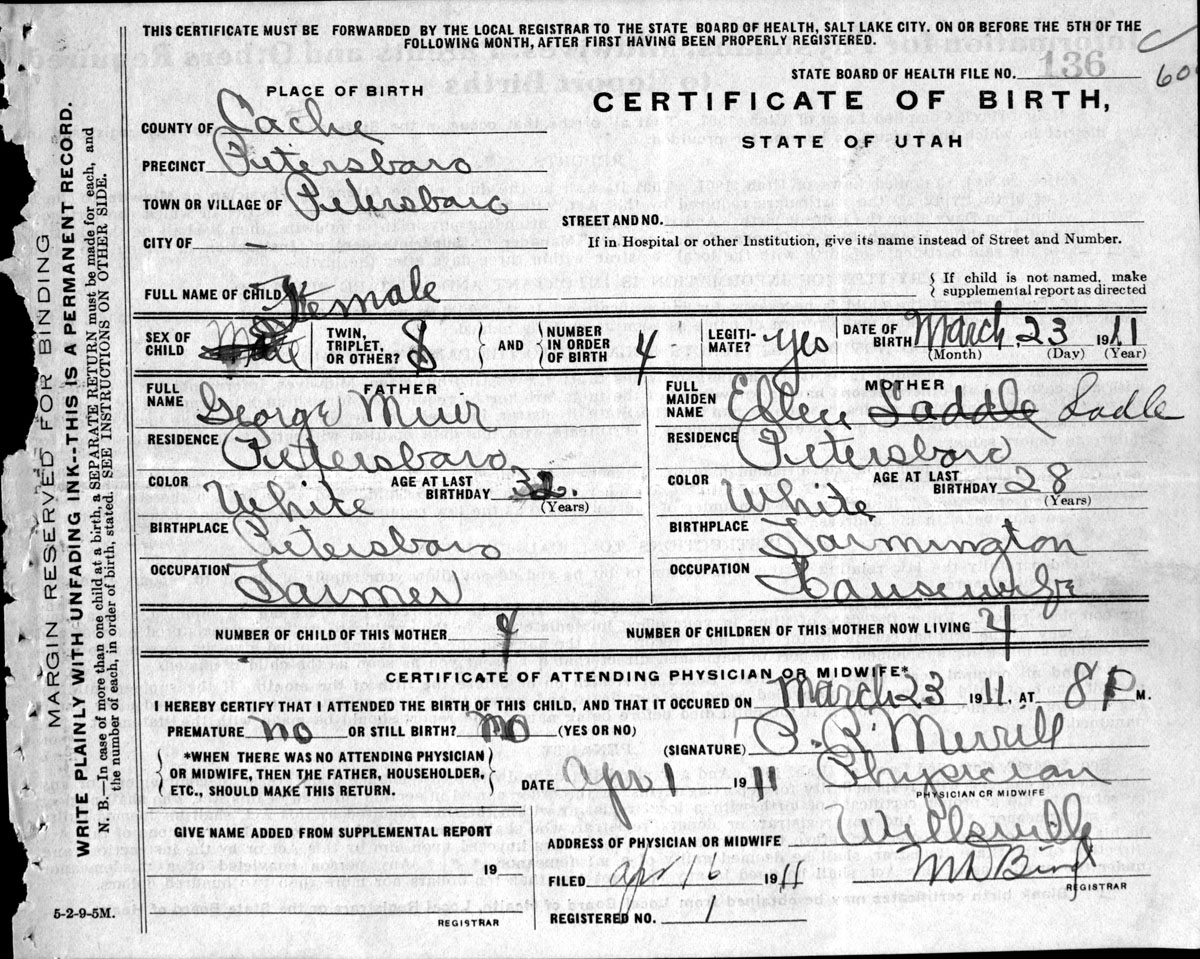 THIS CERTIFICATE MUST BE FORWARDED BY THE LOCAL REGISTRAR TO THE STATE BOARD OF HEALTH, SALT LAKE CITY. ON OR BEFORE THE 5TH OF THE
FOLLOWING MONTH, AFTER FIRST HAVING BEEN PROPERLY REGISTERED.
136
STATE BOARD OF HEALTH FILE NO.
PLACE OF BIRTH
CERTIFICATE OF BIRTH,
STATE OF UTAH
COUNTY OF Cache
PRECINCT Petersboro
TOWN OR VILLAGE OF Petersboro
STREET AND NO.
CITY OF —
If in Hospital or other Institution, give its name instead of Street and Number.
FULL NAME OF CHILD
Female
If child is not named, make
supplemental report as directed
SEX OF CHILD
TWIN, TRIPLET, OR OTHER?
AND
NUMBER IN ORDER OF BIRTH 4
LEGITIMATE? yes
DATE OF BIRTH March 23 1911
(Month) (Day) (Year)
FATHER
FULL NAME George Muir
RESIDENCE Petersboro
COLOR White
AGE AT LAST BIRTHDAY 32.
(Years)
BIRTHPLACE Petersboro
OCCUPATION Farmer
MOTHER
FULL MAIDEN NAME Ellen Saddle Sadle
RESIDENCE Petersboro
COLOR White
AGE AT LAST BIRTHDAY 28
(Years)
BIRTHPLACE Farmington
OCCUPATION Housewife
NUMBER OF CHILD OF THIS MOTHER 4
NUMBER OF CHILDREN OF THIS MOTHER NOW LIVING 4
CERTIFICATE OF ATTENDING PHYSICIAN OR MIDWIFE*
I HEREBY CERTIFY THAT I ATTENDED THE BIRTH OF THIS CHILD, AND THAT IT OCCURED ON March 23 1911, AT 8 P M.
PREMATURE no OR STILL BIRTH? no (YES OR NO)
*WHEN THERE WAS NO ATTENDING PHYSICIAN
OR MIDWIFE, THEN THE FATHER, HOUSEHOLDER,
ETC., SHOULD MAKE THIS RETURN.
(SIGNATURE) Merrill
DATE Apr 1 1911 Physician
PHYSICIAN OR MIDWIFE
GIVE NAME ADDED FROM SUPPLEMENTAL REPORT
19
REGISTRAR
ADDRESS OF PHYSICIAN OR MIDWIFE Wellsville
FILED Apr 6 1911 M Bird
REGISTRAR
REGISTERED NO. 1
5-2-9-5M.
MARGIN RESERVED FOR BINDING
WRITE PLAINLY WITH UNFADING INK--THIS IS A PERMANENT RECORD.
N. B.—In case of more than one child at a birth, a SEPARATE RETURN must be made for each, and
the number of each, in order of birth, stated. SEE INSTRUCTIONS ON OTHER SIDE.